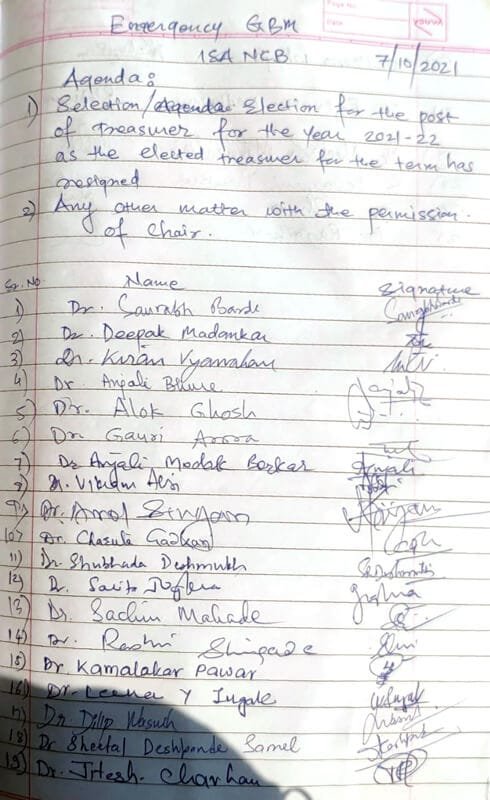 Emergency GBM
ISA NCB 7/10/2021
Agenda:
1) Selection/Agenda Election for the post
of treasurer for the year 2021-22
as the elected treasurer for the term has
resigned
2) Any other matter with the permission.
of Chair.
Sr. No Name Signature
1) Dr. Saurabh Barde
2) Dr. Deepak Madankar
3) Dr. Kiran Vyawahare
4) Dr Anjali Bhure
5) Dr. Alok Ghosh
6) Dr. Gauri Arora
7) Dr Anjali Modak Borkar Anjali
8) Dr. Vikram Alsi
9) Dr. Amol Singam
10) Dr. Charuta Gadkari
11) Dr. Shubhada Deshmukh
12) Dr. Sarita
13) Dr. Sachin Mahade
14) Dr. Rashmi Shingade
15) Dr. Kamalakar Pawar
16) Dr. Leena Y Ingale
17) Dr. Dilip
18) Dr Sheetal Deshpande Samel
19) Dr. Jitesh Chavhan